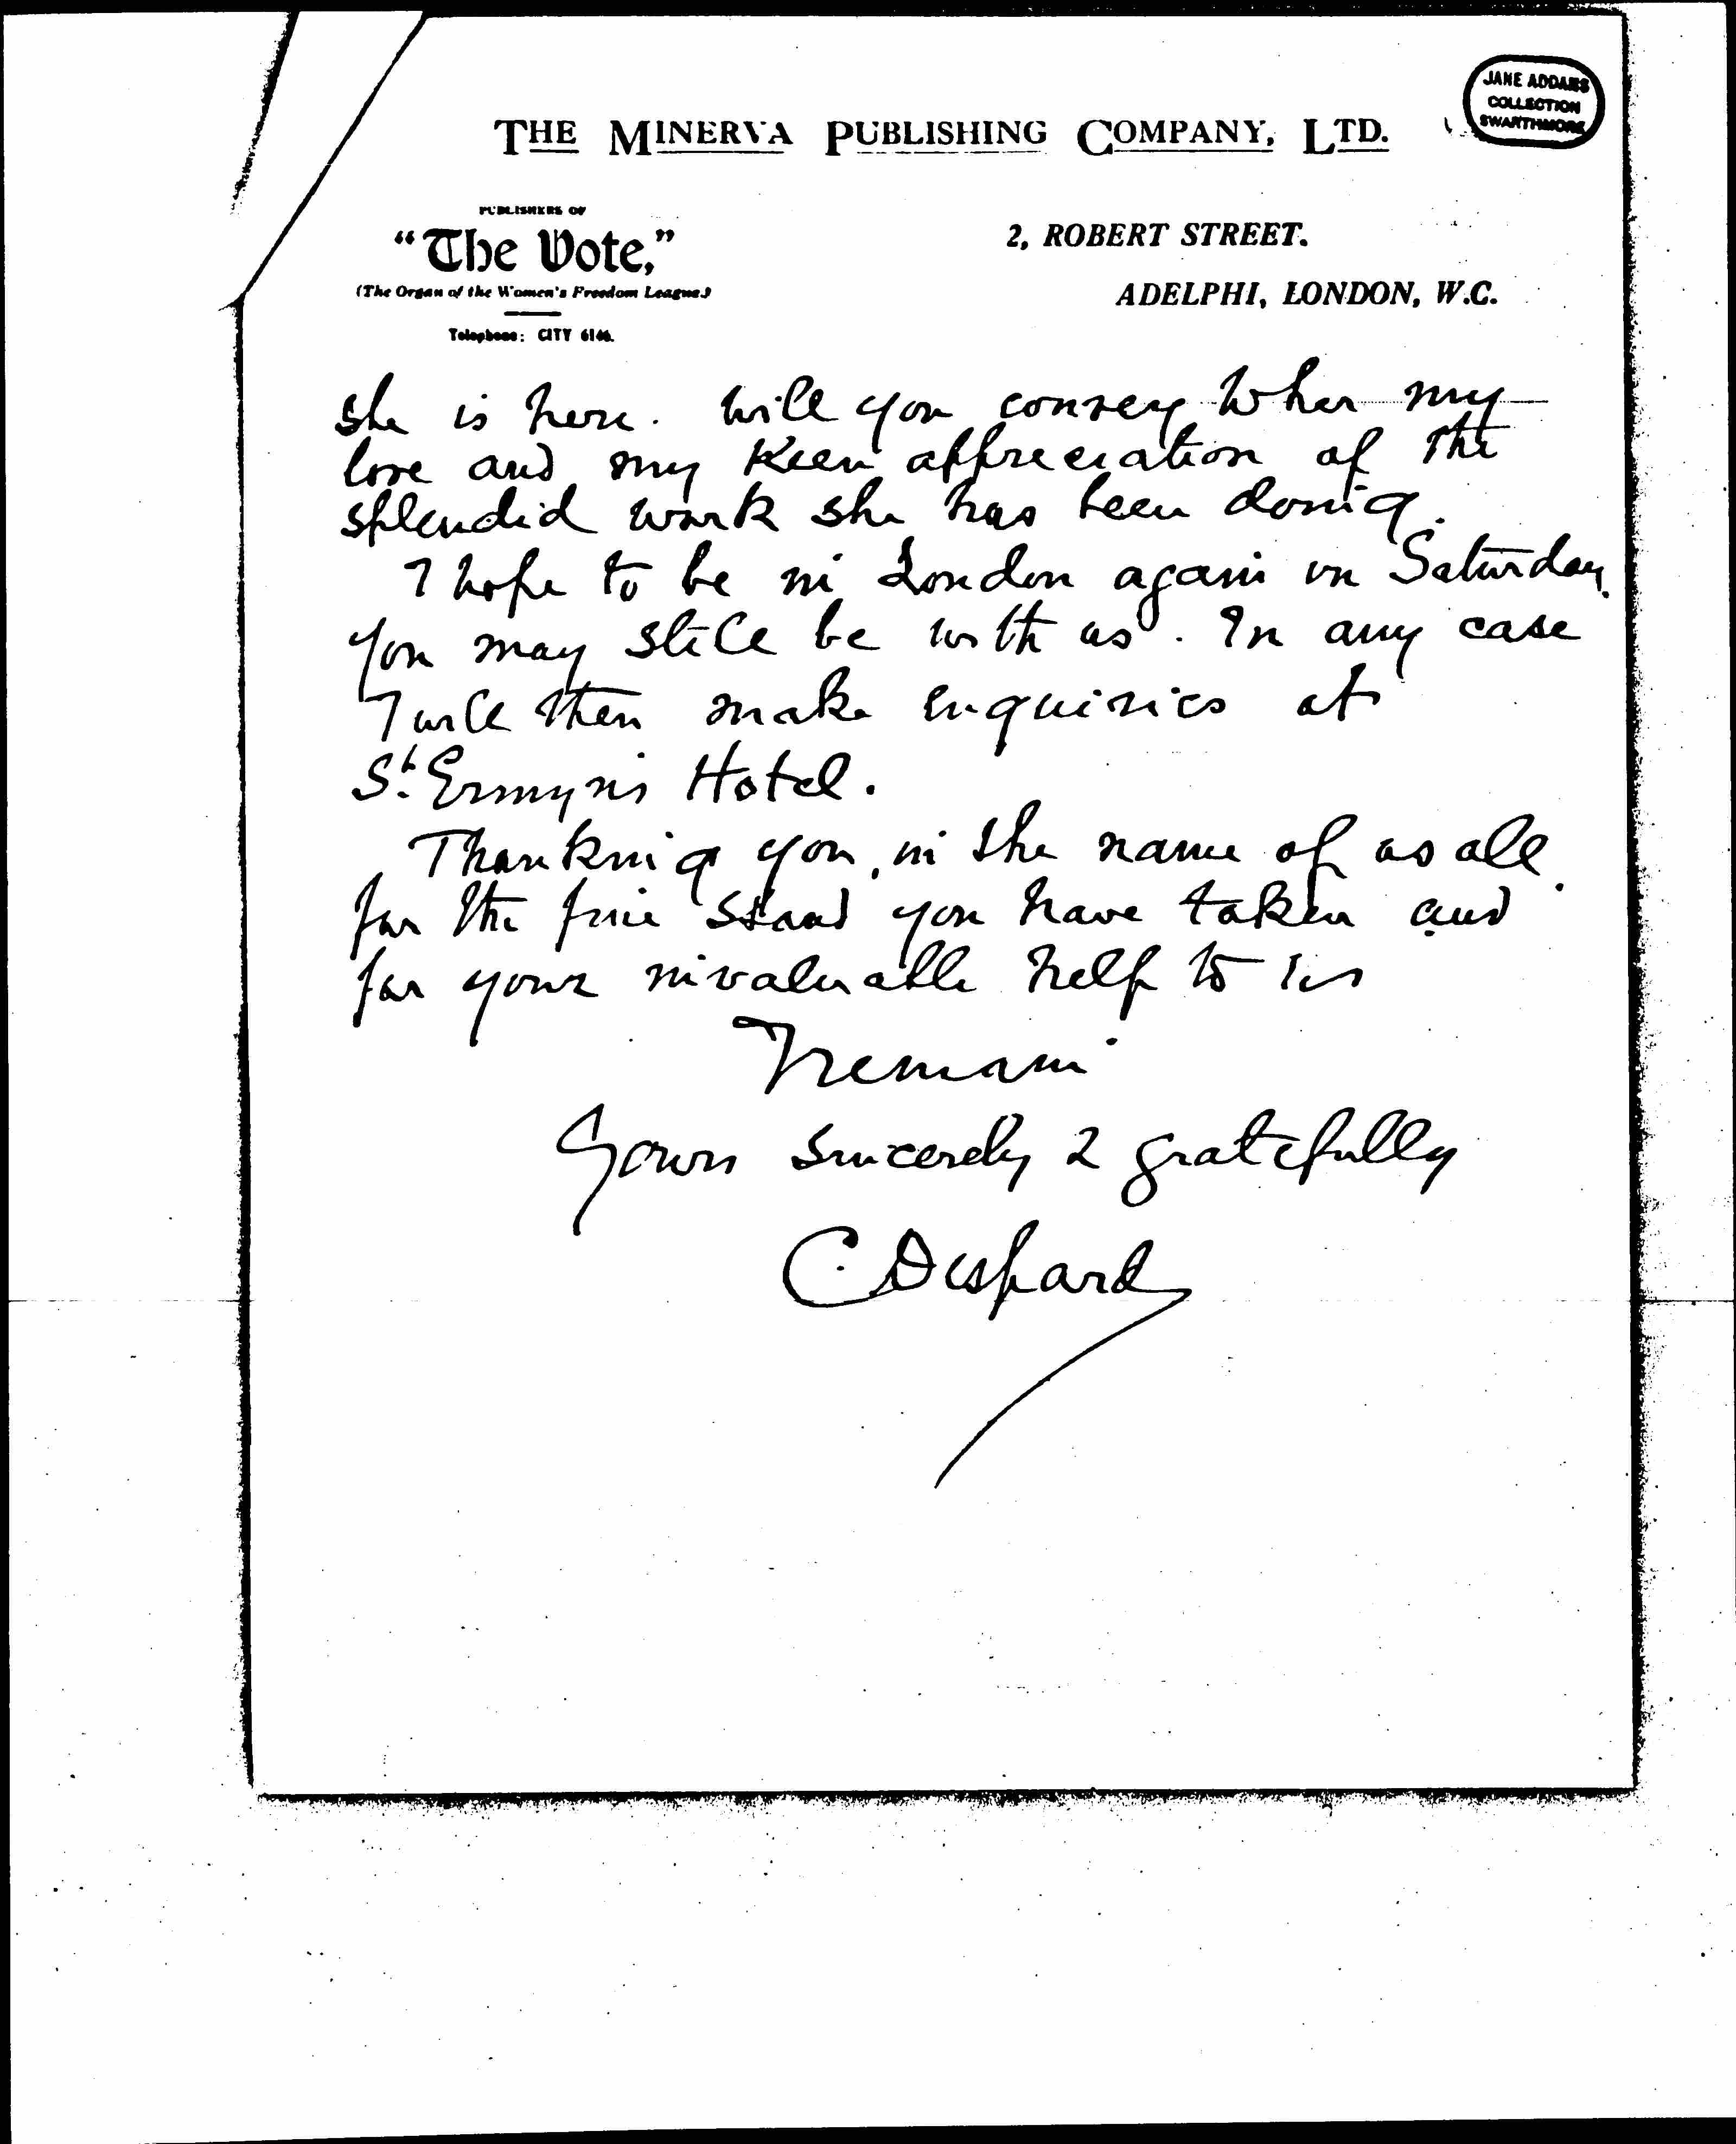 JANE ADDAMS
COLLECTION
SWARTHMORE
THE MINERVA PUBLISHING COMPANY, LTD.
PUBLISHERS OF
"The Vote,"
(The Organ of the Women's Freedom League)
Telephone: CITY 6146.
2, ROBERT STREET.
ADELPHI, LONDON, W.C.
she is here. Will you convey to her my
love and my keen appreciation of the
splendid work she has been doing.
I hope to be in London again on Saturday.
You may still be with us. In any case
I will then make enquiries at
St. Ermyns Hotel.
Thanking you, in the name of us all,
for the fine stand you have taken and
for your invaluable help to us
I remain
Yours sincerely & gratefully
C. Despard